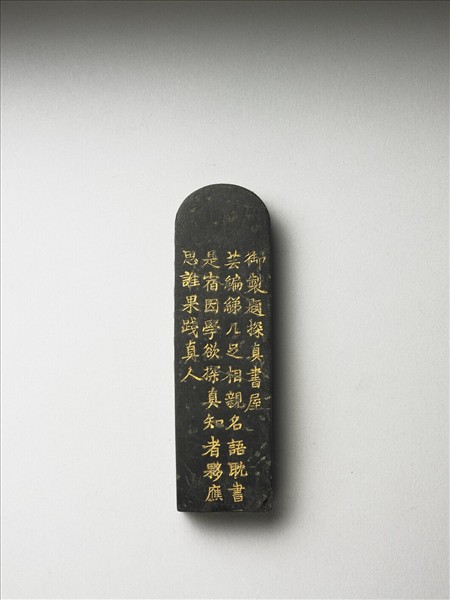 御製題探真書屋
芸編綈几足相親名語耽書
是宿因學欲探真知者夥應
思誰果踐真人